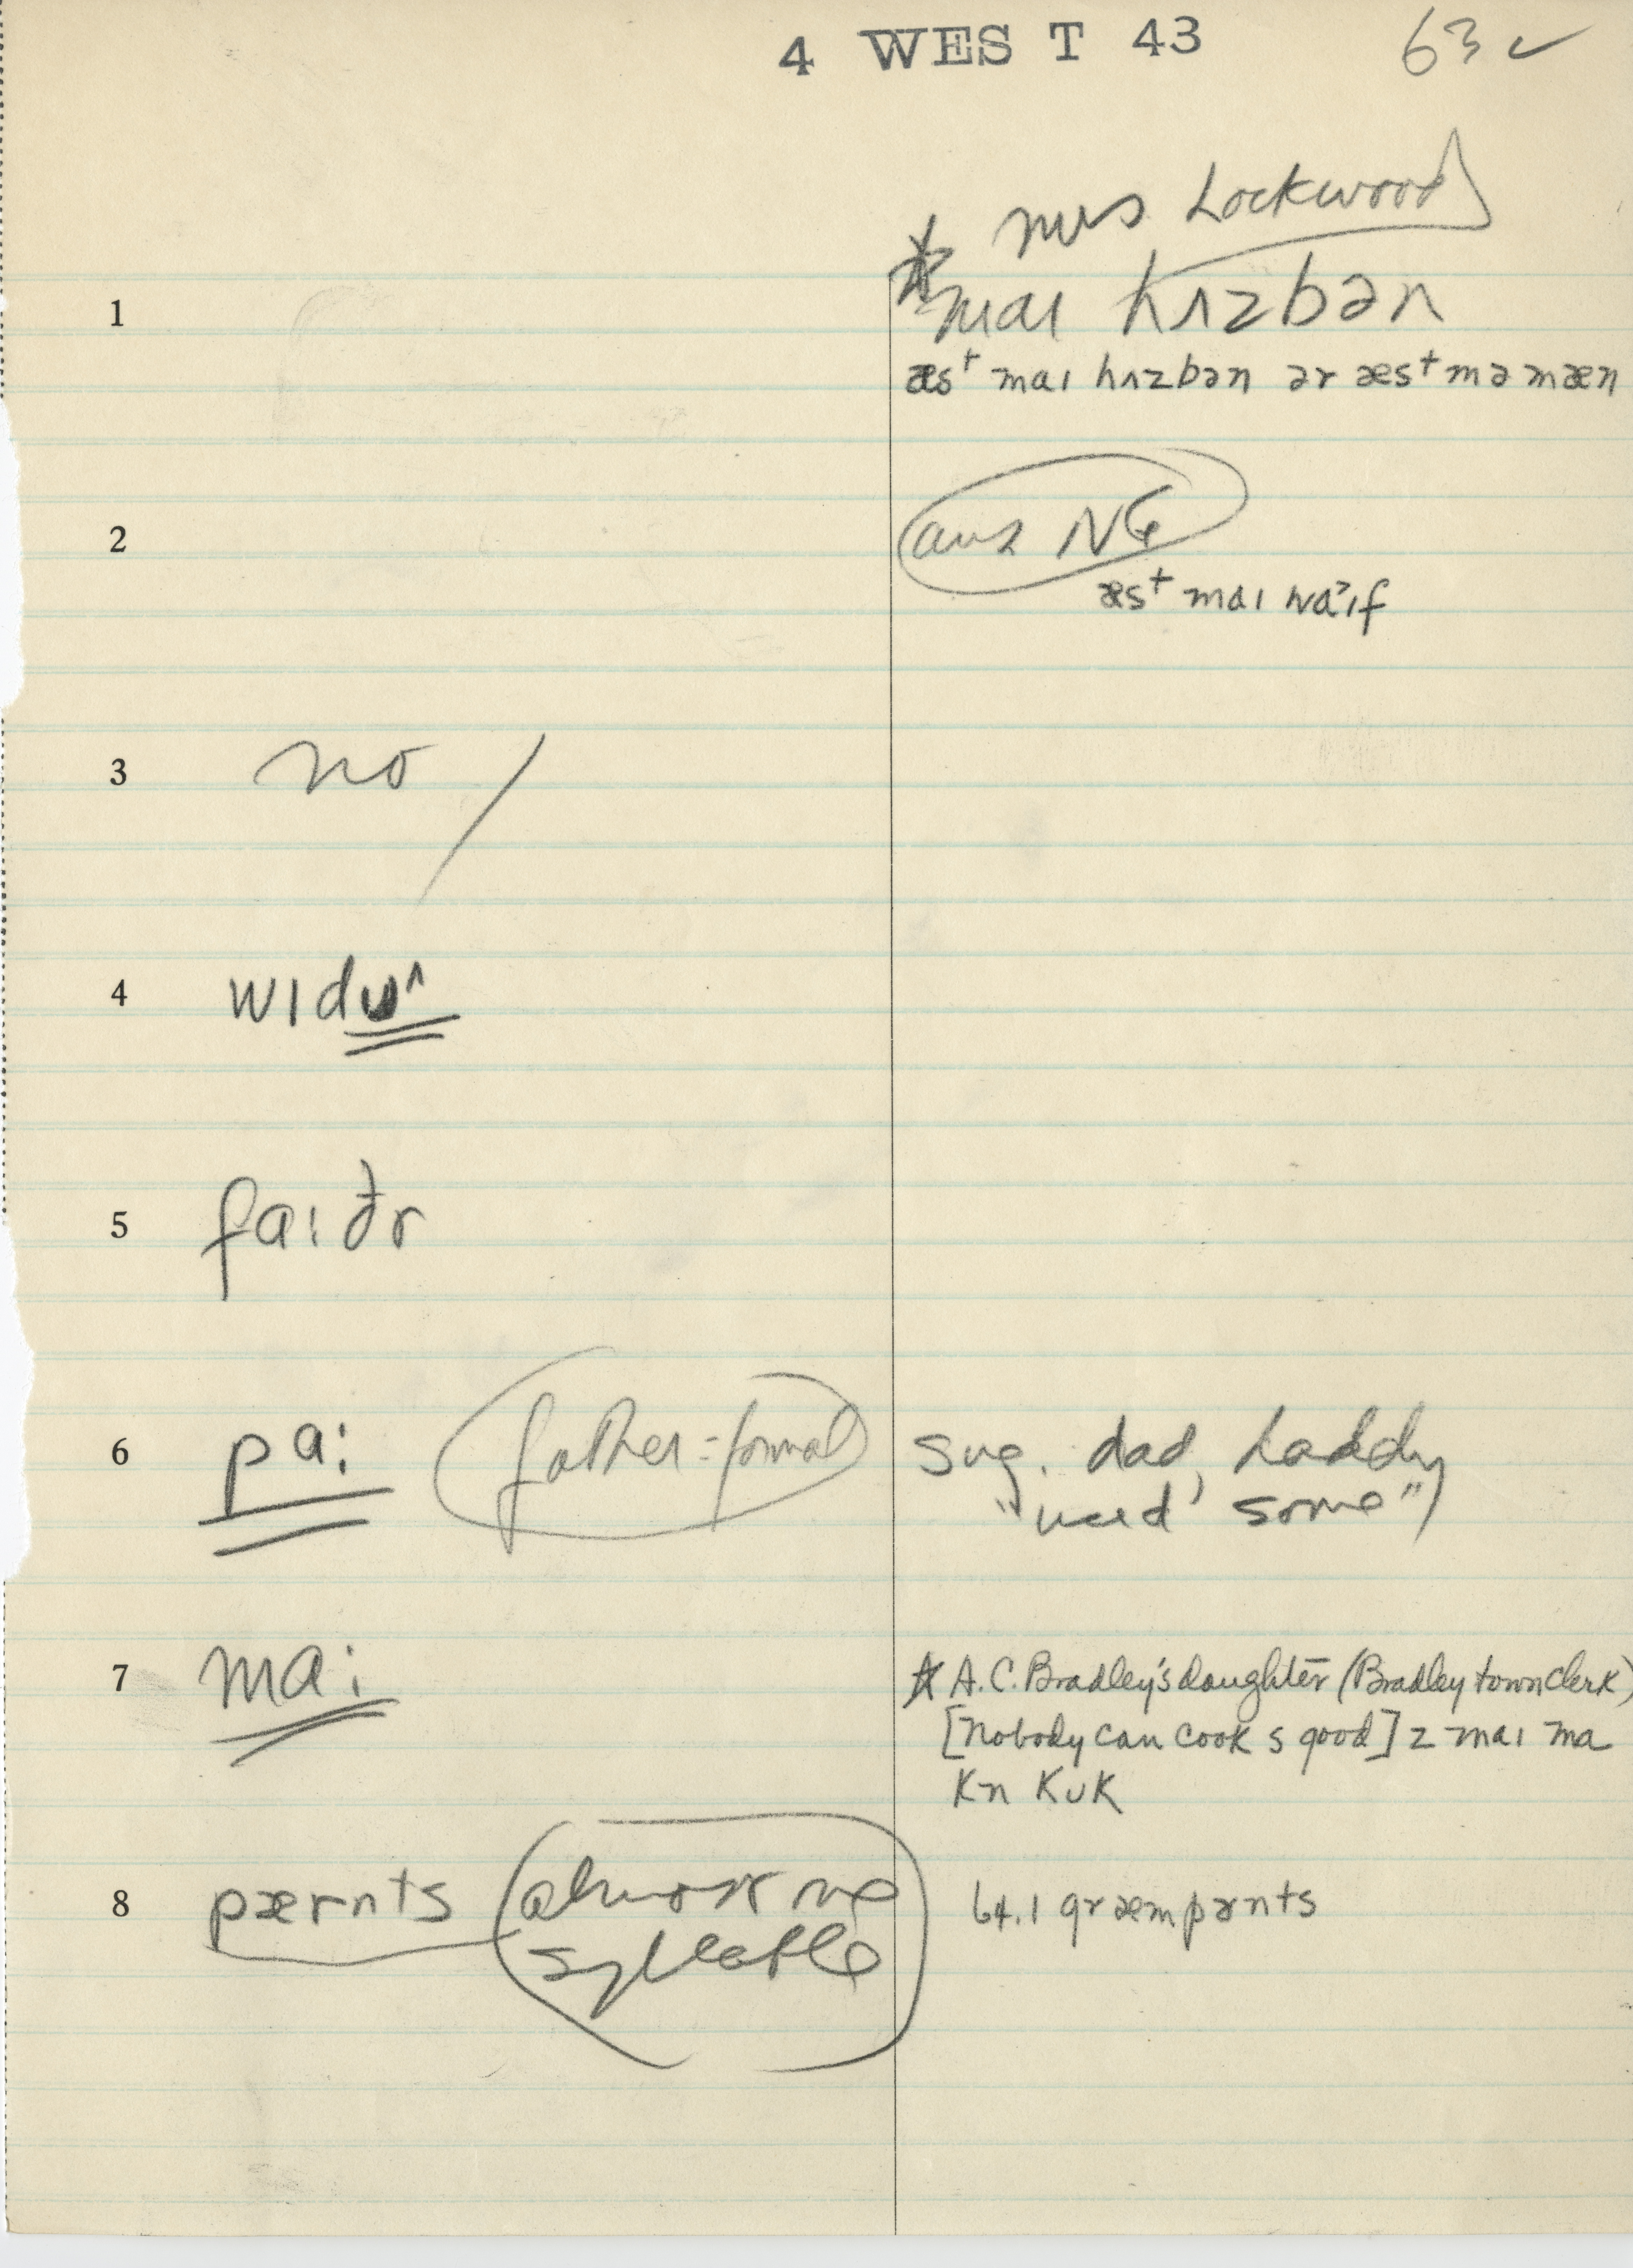 4 WEST 43 63 ✓
* Mrs Lockwood
1 maɪ hʌzbən
æst maɪ hʌzbən ər æst mə mæn
2 aux NG
æst maɪ waˀɪf
3 no /
4 wɪdʊ^
5 fa:ðr
6 pa: father = formal sug. dad, daddy
"used some"
7 ma: * A.C. Bradley's daughter (Bradley town clerk)
[nobody can cook s good] z maɪ ma
kn kʊk
8 pærnts almost one 64.1 græmpərnts
syllable